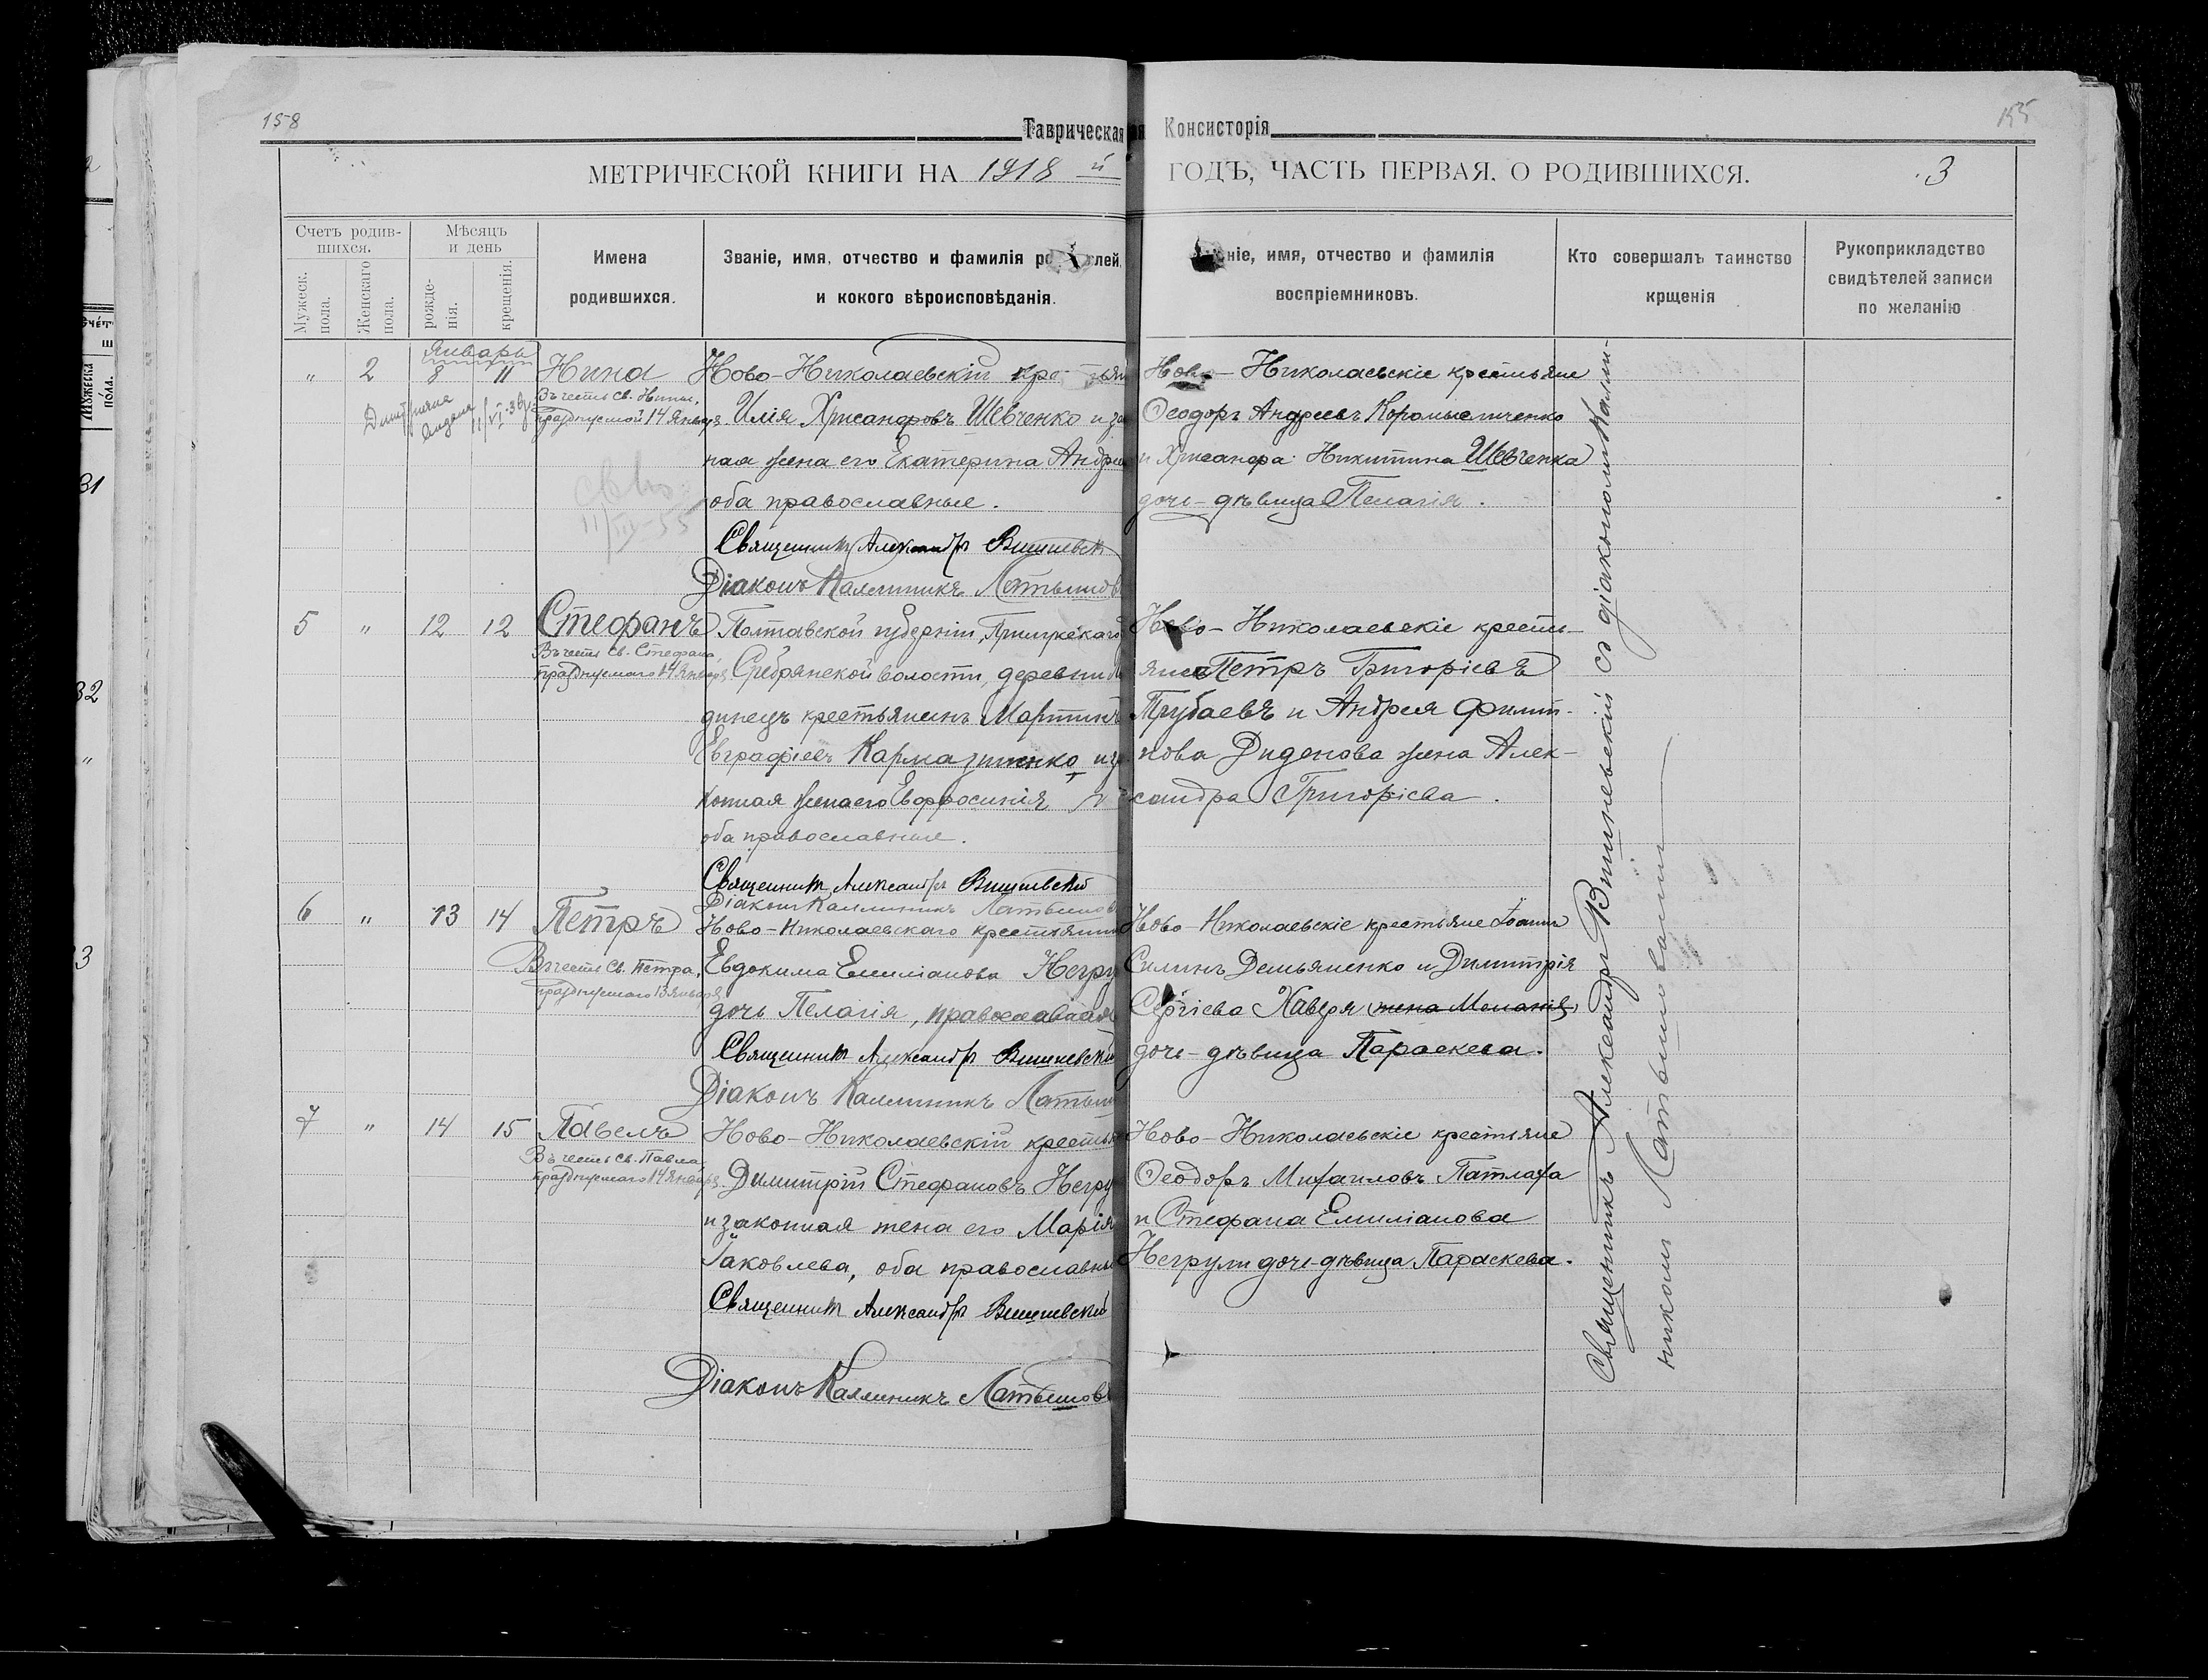 158
Таврическая Консисторія
155
МЕТРИЧЕСКОЙ КНИГИ НА 1918 й ГОДЪ, ЧАСТЬ ПЕРВАЯ. О РОДИВШИХСЯ. 3
Счетъ родив-
шихся.
Мужеск. пола.
Женскаго пола.
Мѣсяцъ
и день
рожде-
нія.
крещенія.
Имена
родившихся.
Званіе, имя, отчество и фамилія
и кокого вѣроисповѣданія.
имя, отчество и фамилія
воспріемниковъ.
Кто совершалъ таинство
крщенія
Рукоприкладство
свидѣтелей записи
по желанію
Январь
" 2 8 11 Нина
Въ честь Св. Нины,
празднуемой 14 Января
Ново-Николаевскій
Илія Хрисанфовъ Шевченко и
ная жена его Екатерина
оба православные.
Священникъ Александръ
Діаконъ Каллиникъ
Ново-Николаевскіе крестьяне
Ѳеодоръ Андреевъ Коромысличенко
и Хрисанфа Никитина Шевченка
дочь-дѣвица Пелагія.
5 " 12 12 Стефанъ
Въ честь Св. Стефана,
празднуемаго 14 Января
Полтавской губерніи, Прилукскаго
Сребрянской волости, деревни
динецъ крестьянинъ Мартинъ
Евграфіевъ Кармазиненко и
конная жена его Евфросинія
оба православные.
Священникъ Александръ Вишневскій
Діаконъ Каллиникъ
Ново-Николаевскіе кресть-
яне Петръ Григоріевъ
Трубаевъ и Андрея Филип-
пова Диденова жена Алек-
сандра Григоріева.
6 " 13 14 Петръ
Въ честь Св. Петра,
празднуемаго 13 Января
Ново-Николаевскаго крестьянина
Евдокима Емиліанова
дочь Пелагія, православная
Священникъ Александръ Вишневскій
Діаконъ Каллиникъ
Ново-Николаевскіе крестьяне Іоаннъ
Силинъ Демьяненко и Димитрія
Сергіева Хавдя жена Меланія
дочь-дѣвица Параскева.
7 " 14 15 Павелъ
Въ честь Св. Павла,
празднуемаго 14 Января
Ново-Николаевскій
Димитрій Стефановъ
и законная жена его Марія
Іаковлева, оба православные
Священникъ Александръ Вишневскій
Діаконъ Каллиникъ Латышовъ
Ново-Николаевскіе крестьяне
Ѳеодоръ Михаиловъ Патлаха
и Стефана Емиліанова
Негрули дочь-дѣвица Параскева.
Священникъ Александръ Вишневскій съ діакономъ Калли-
никомъ Латышовымъ